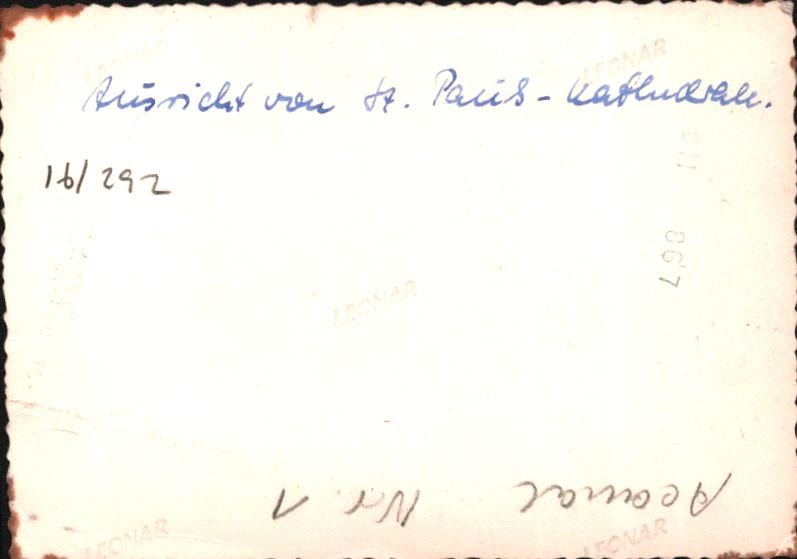 LEONAR
LEONAR
Aussicht von St. Pauls-Kathedrale.
16/292
867
LEONAR
Nr. 1
LEONAR
LEONAR